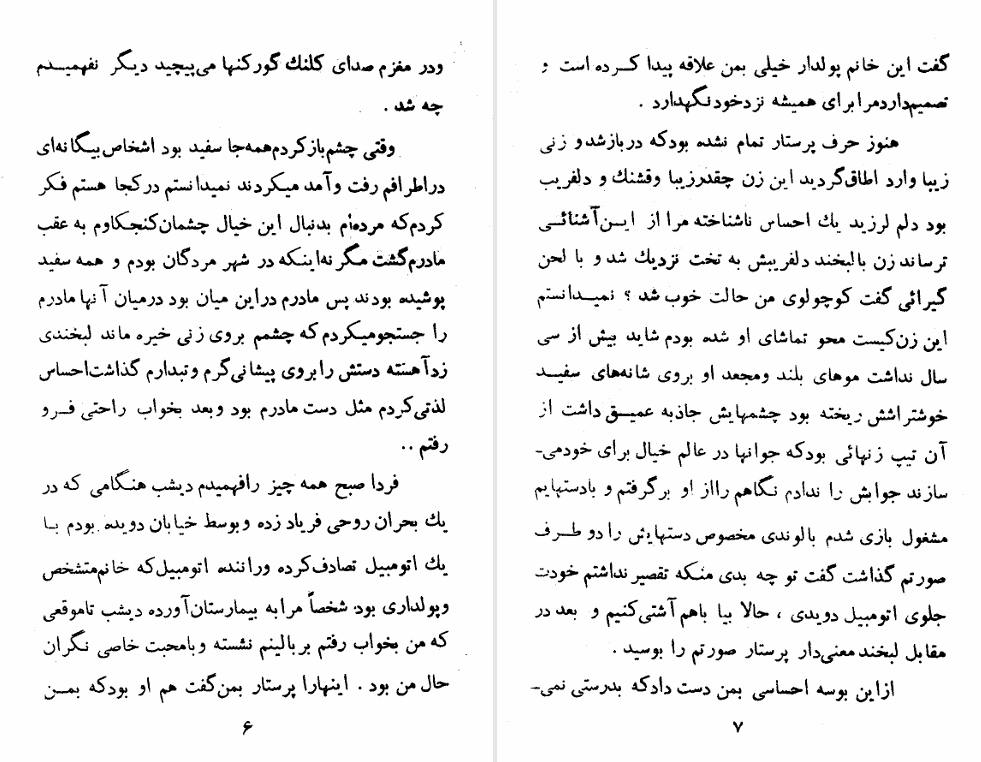 ودر مغزم صدای کلنك گورکنها می‌پیچید دیگر نفهمیدم
چه شد .
وقتی چشم‌باز کردم همه‌جا سفید بود اشخاص بیگانه‌ای
دراطرافم رفت و آمد میکردند نمیدانستم درکجا هستم فکر
کردم‌که مرده‌ام بدنبال این خیال چشمان‌کنجکاوم به عقب
مادرم‌گشت مگر نه‌اینکه در شهر مردگان بودم و همه سفید
پوشیده بودند پس مادرم دراین میان بود درمیان آنها مادرم
را جستجومیکردم که چشمم بروی زنی خیره ماند لبخندی
زدآهسته دستش را بروی پیشانی‌گرم و تبدارم گذاشت احساس
لذتی‌کردم مثل دست مادرم بود وبعد بخواب راحتی فرو
رفتم ..
فردا صبح همه چیز رافهمیدم دیشب هنگامی که در
یك بحران روحی فریاد زده و بوسط خیابان دویده بودم با
یك اتومبیل تصادف‌کرده وراننده اتومبیل‌که خانم‌متشخص
وپولداری بود شخصاً مرا به بیمارستان‌آورده دیشب تاموقعی
که من بخواب رفتم بربالینم نشسته وبامحبت خاصی نگران
حال من بود . اینهارا پرستار بمن‌گفت هم او بودکه بمن
۶
گفت این خانم پولدار خیلی بمن علاقه پیدا کرده است و
تصمیم‌داردمرا برای همیشه نزدخود نگهدارد .
هنوز حرف پرستار تمام نشده بودکه دربازشد و زنی
زیبا وارد اطاق‌گردید این زن چقدرزیبا وقشنك و دلفریب
بود دلم لرزید یك احساس ناشناخته مرا از این‌آشنائی
ترساند زن بالبخند دلفریبش به تخت نزدیك شد و با لحن
گیرائی گفت کوچولوی من حالت خوب شد ؟ نمیدانستم
این زن‌کیست محو تماشای او شده بودم شاید بیش از سی
سال نداشت موهای بلند ومجعد او بروی شانه‌های سفید
خوشتراشش ریخته بود چشمهایش جاذبه عمیق داشت از
آن تیپ زنهائی بودکه جوانها در عالم خیال برای خودمی-
سازند جوابش را ندادم نگاهم رااز او برگرفتم و بادستهایم
مشغول بازی شدم بالوندی مخصوص دستهایش را دو طرف
صورتم گذاشت گفت تو چه بدی منکه تقصیر نداشتم خودت
جلوی اتومبیل دویدی ، حالا بیا باهم آشتی‌کنیم و بعد در
مقابل لبخند معنی‌دار پرستار صورتم را بوسید .
ازاین بوسه احساسی بمن دست دادکه بدرستی نمی-
۷